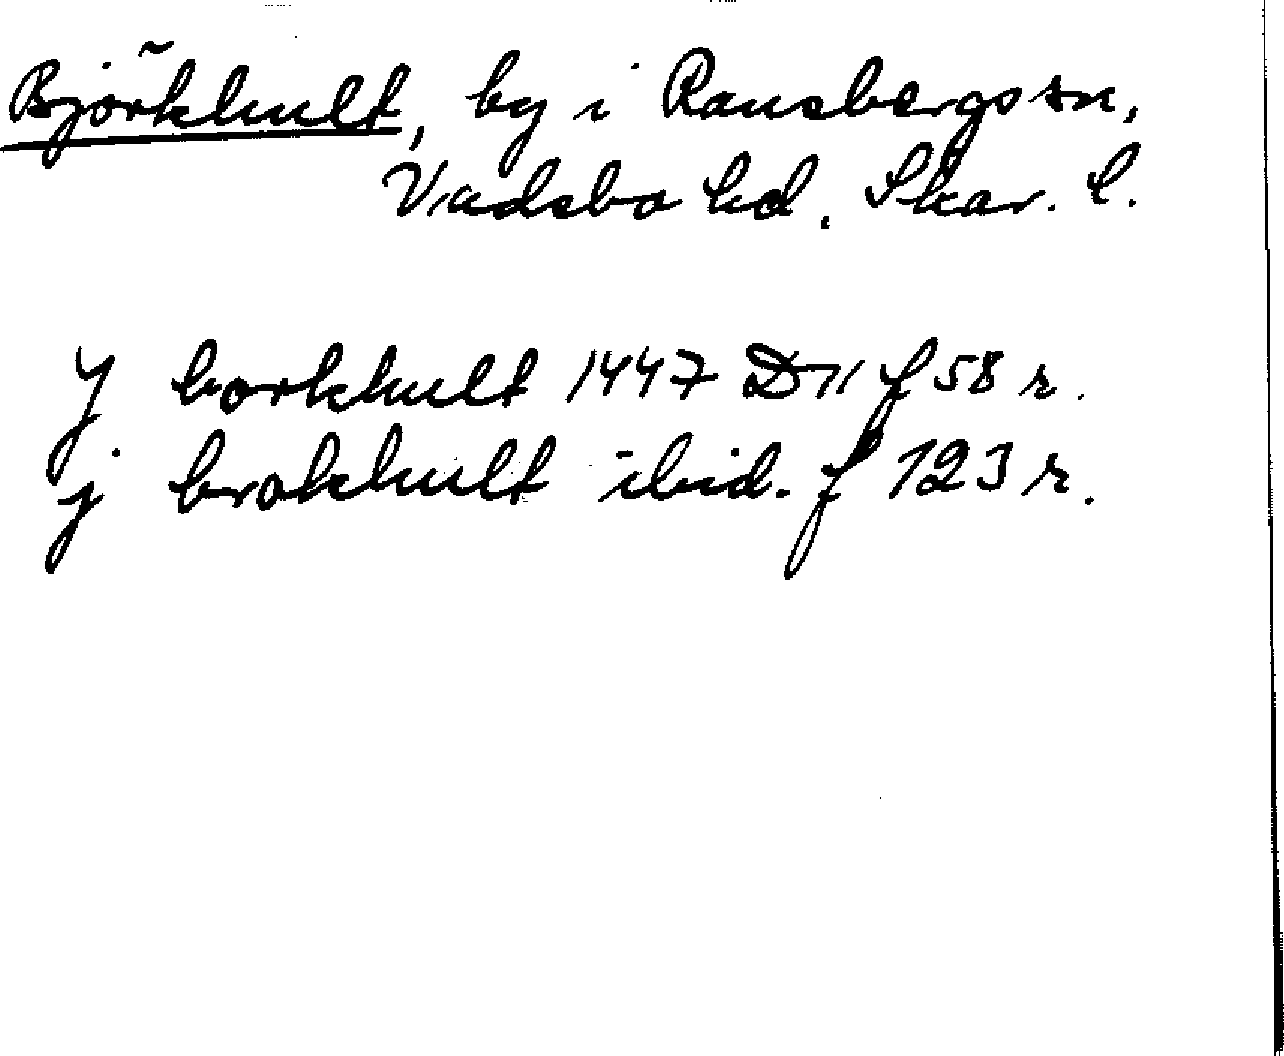 Björkhult, by i Ransbergs sn,
Vadsbo hd. Skar. l.
J borkhult 1447 D 11 f 58 r.
j brokhult ibid. f 123 r.